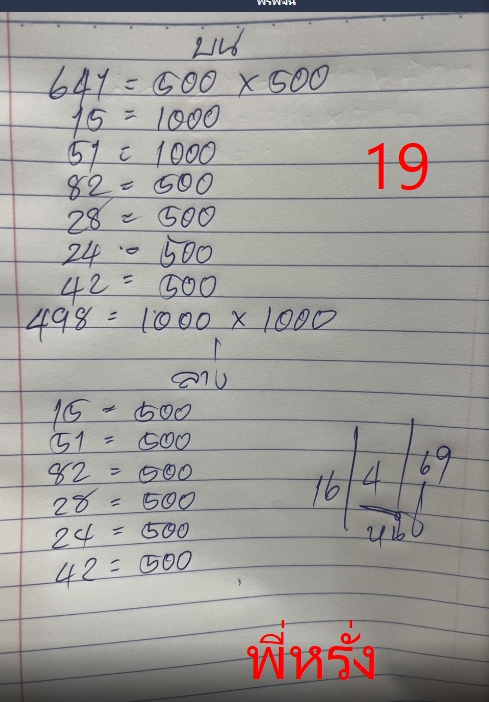 บน
641 = 500 x 500
15 = 1000
51 = 1000
19
82 = 500
28 = 500
24 = 500
42 = 500
498 = 1000 x 1000
ล่าง
15 = 500
51 = 500
82 = 500
28 = 500
24 = 500
42 = 500
16 4 69
พี่หรั่ง